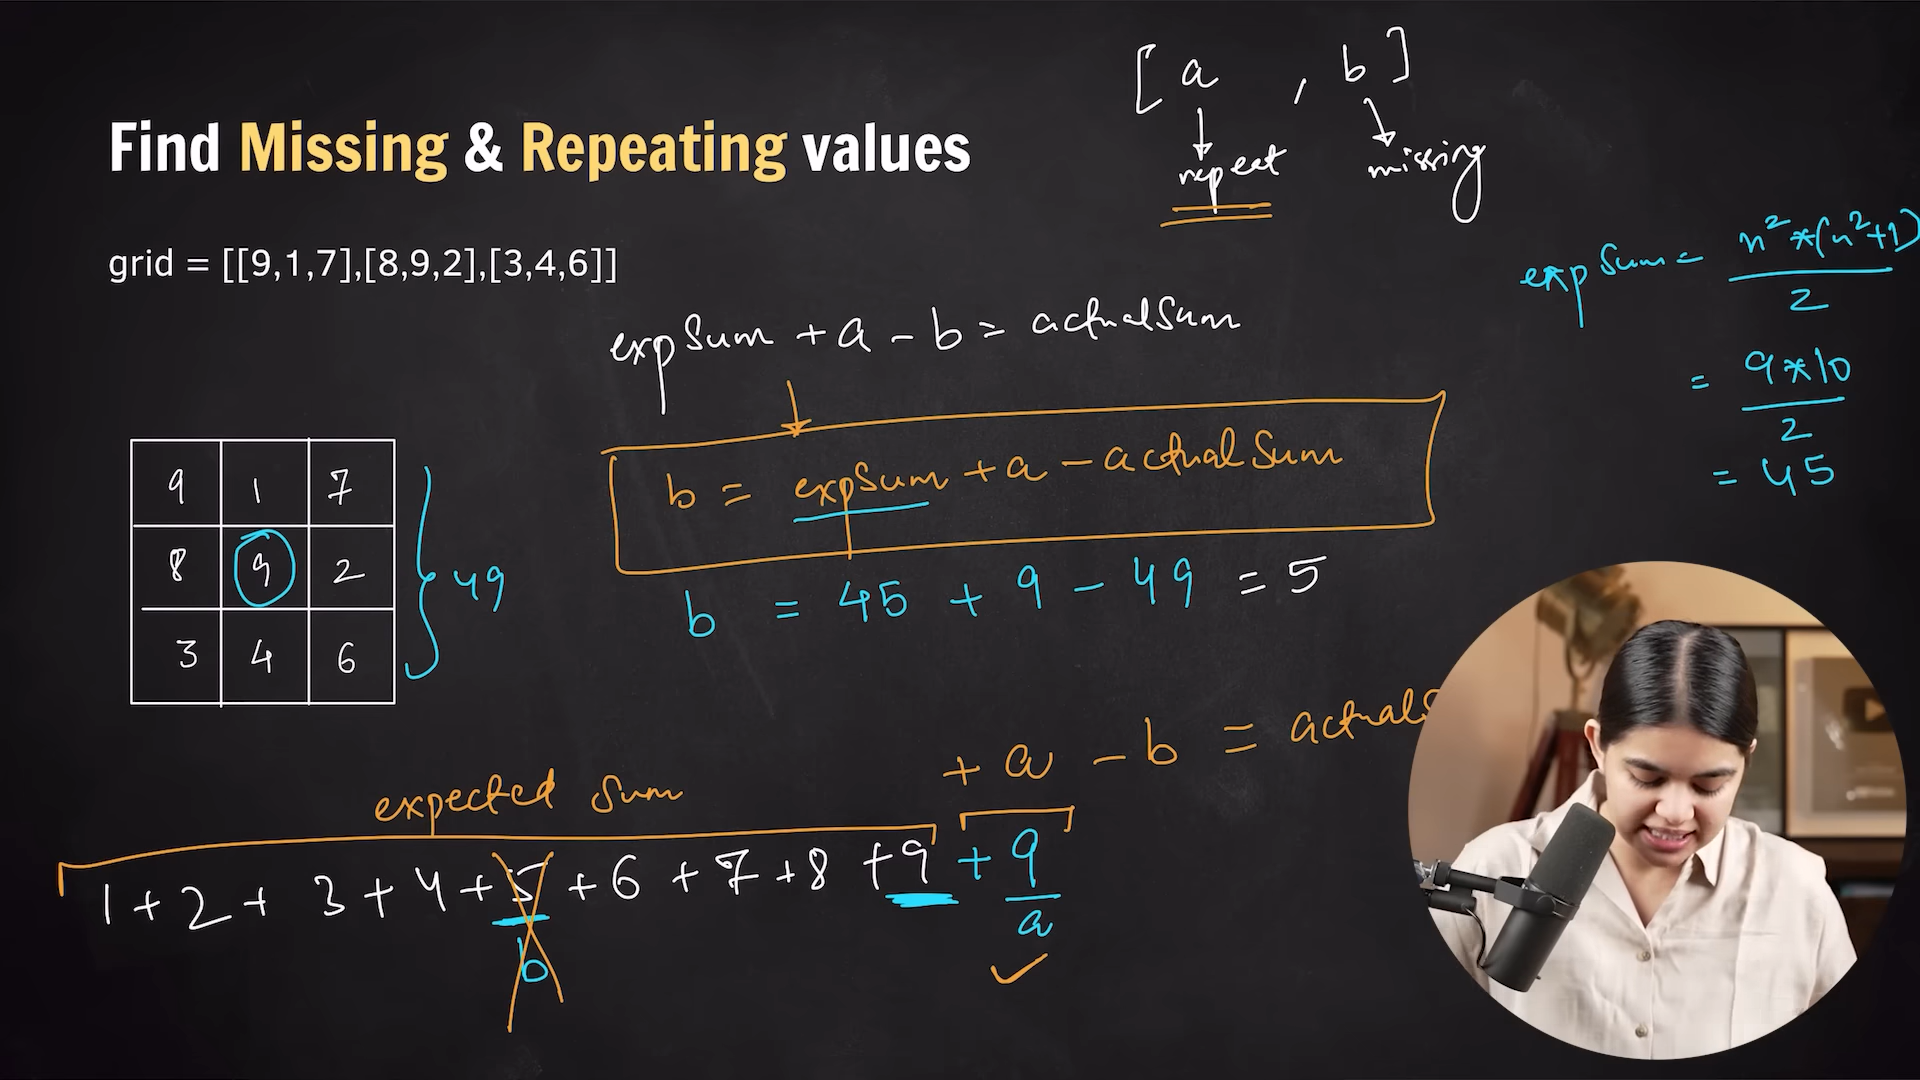 [ a , b ]
repeat missing
Find Missing & Repeating values
grid = [[9,1,7],[8,9,2],[3,4,6]]
expSum = n²*(n²+1)
2
= 9*10
2
= 45
expSum + a - b = actualSum
b = expSum + a - actualSum
b = 45 + 9 - 49 = 5
9 1 7
8 9 2
3 4 6
49
+ a - b = actualS
expected sum
1 + 2 + 3 + 4 + 5 + 6 + 7 + 8 + 9 + 9
b a